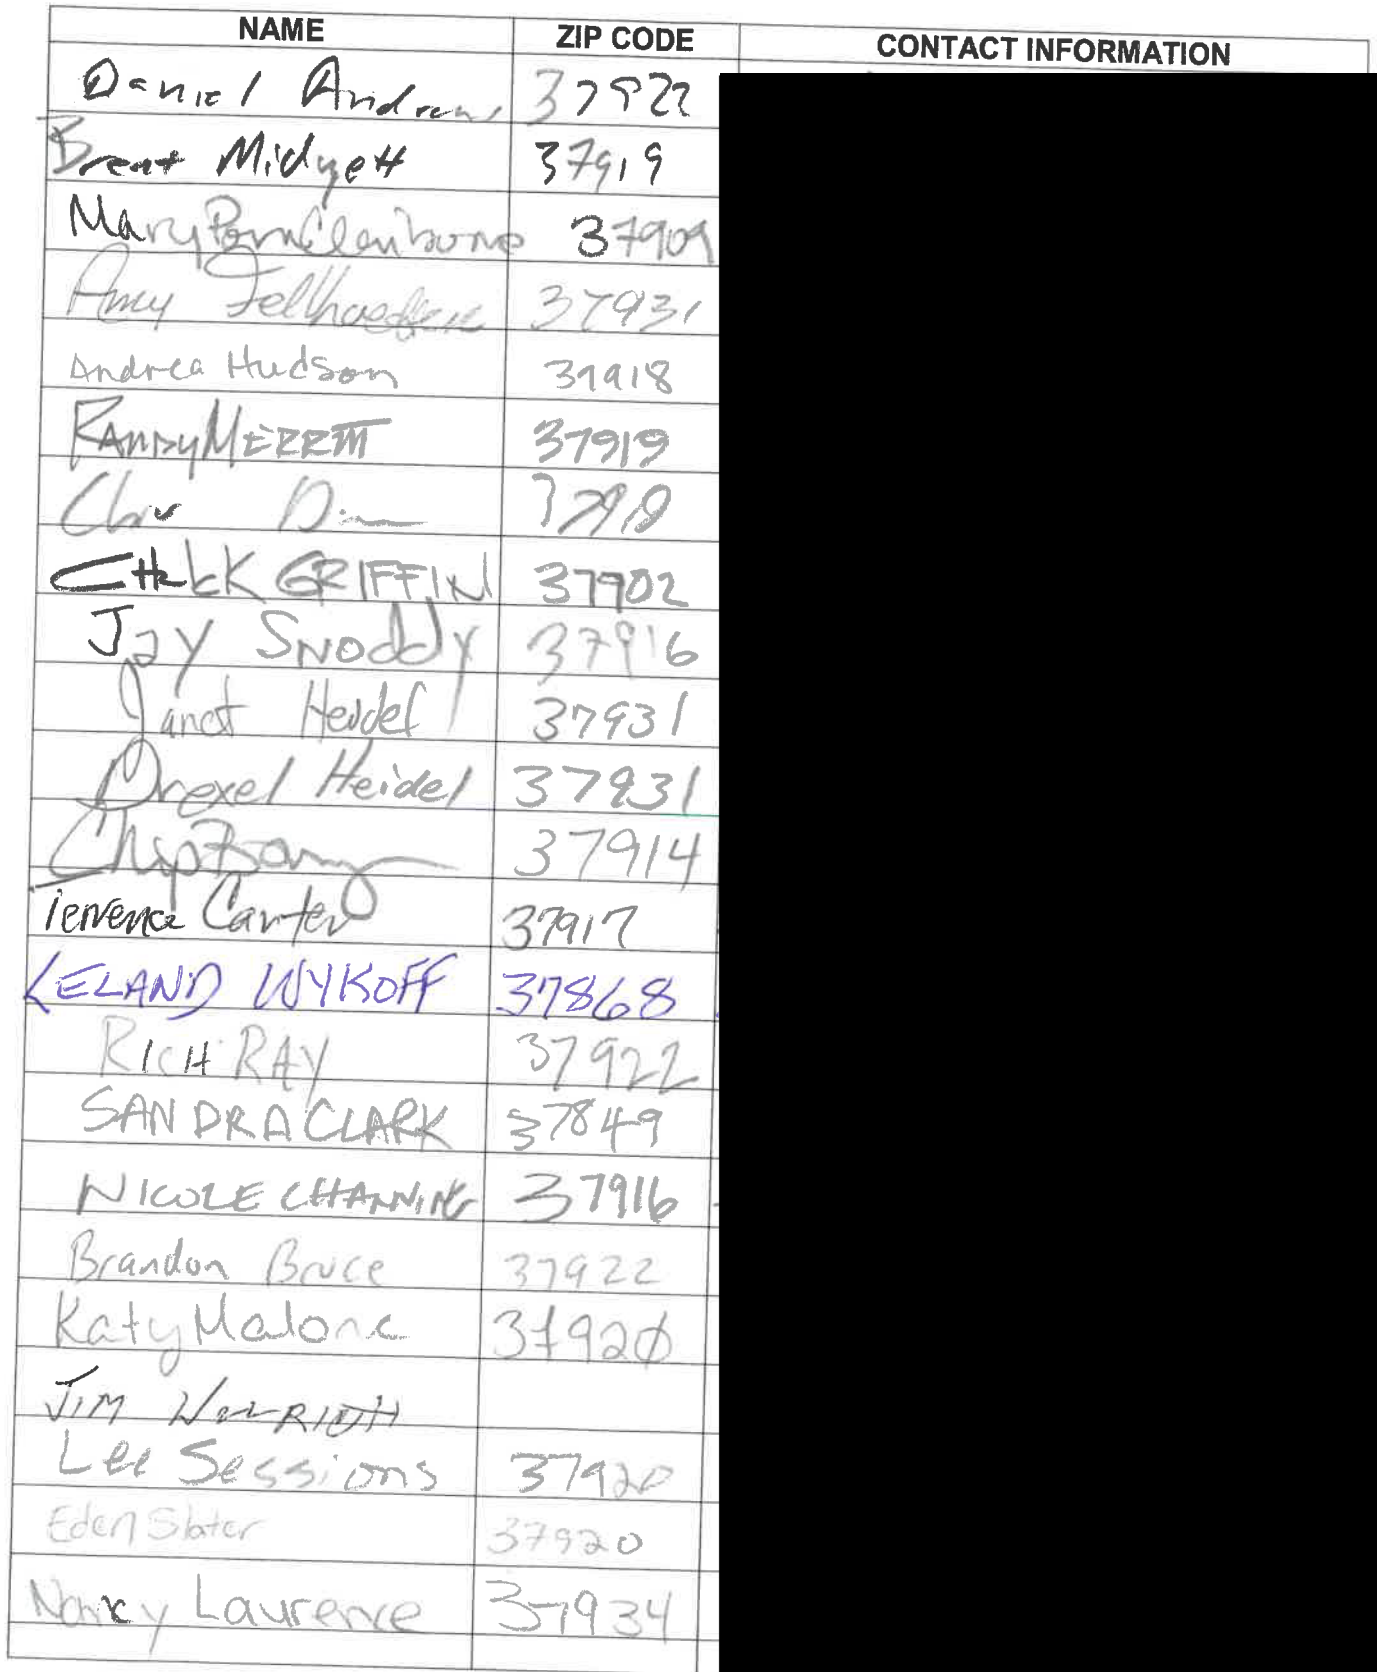 NAME ZIP CODE CONTACT INFORMATION
Daniel Andrews 37922
Brent Midyett 37919
Mary Pom Claiborne 37909
Amy 37931
Andrea Hudson 37918
RANDY MERRITT 37919
CHUCK GRIFFIN 37902
Jay SNoddy 37916
Janet Heidel 37931
Drexel Heidel 37931
Chip 37914
Terrence Carter 37917
LELAND WYKOFF 37868
RICH RAY 37922
SANDRA CLARK 37849
NICOLE CHANNING 37916
Brandon Bruce 37922
Katy Malone 37920
JIM
Lee Sessions 37920
Eden Slater 37920
Nancy Laurence 37934